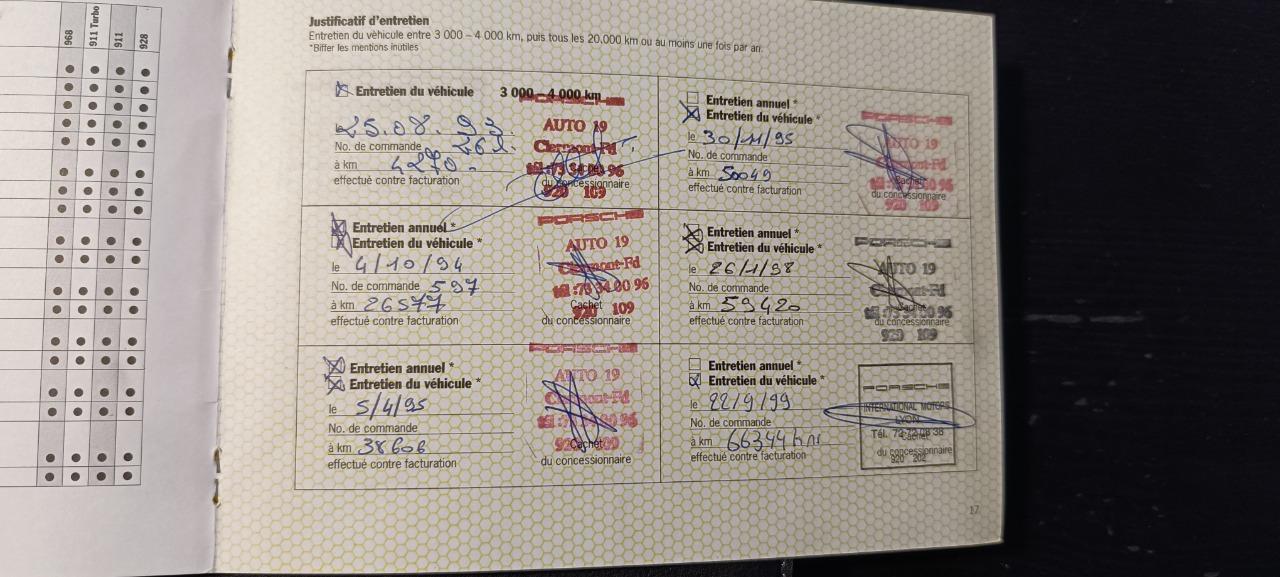 968
911 Turbo
911
928
Justificatif d'entretien
Entretien du véhicule entre 3 000 – 4 000 km, puis tous les 20.000 km ou au moins une fois par an.
*Biffer les mentions inutiles
Entretien du véhicule 3 000 – 4 000 km
le 25.08.93.
No. de commande 261.
à km 4270.
effectué contre facturation
PORSCHE
AUTO 19
Clermont-Fd
tél :73 34 00 96
du concessionnaire
920 109
Entretien annuel *
Entretien du véhicule *
le 4/10/94
No. de commande 597
à km 26577
effectué contre facturation
PORSCHE
AUTO 19
Clermont-Fd
tél :73 34 00 96
Cachet
920 109
du concessionnaire
Entretien annuel *
Entretien du véhicule *
le 5/4/95
No. de commande
à km 38606
effectué contre facturation
PORSCHE
AUTO 19
Clermont-Fd
Cachet
du concessionnaire
Entretien annuel *
Entretien du véhicule *
le 30/11/95
No. de commande
à km 50049
effectué contre facturation
PORSCHE
AUTO 19
Clermont-Fd
Cachet
du concessionnaire
920 109
Entretien annuel *
Entretien du véhicule *
le 26/1/98
No. de commande
à km 59420
effectué contre facturation
PORSCHE
AUTO 19
Clermont-Fd
tél :73 34 00 96
Cachet
du concessionnaire
920 109
Entretien annuel *
Entretien du véhicule *
le 22/9/99
No. de commande
à km 66344 km
effectué contre facturation
PORSCHE
INTERNATIONAL MOTORS
LYON
Tél.
Cachet
du concessionnaire
920 202
17